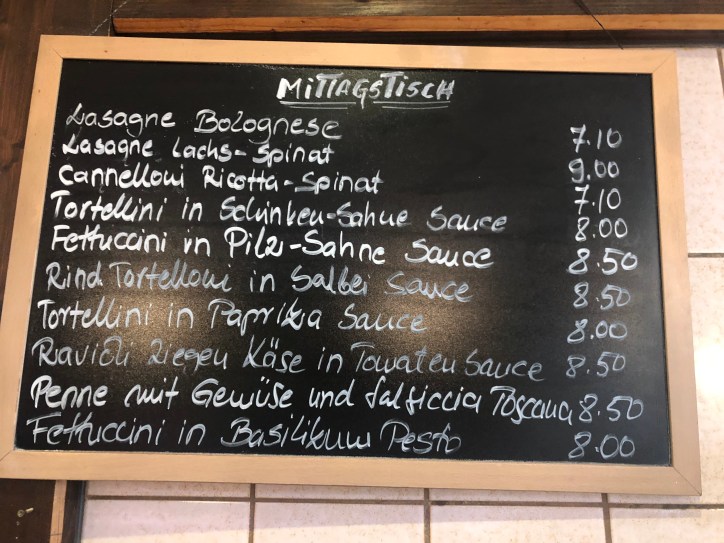 MITTAGSTISCH
Lasagne Bolognese 7.10
Lasagne Lachs-Spinat 9.00
Cannelloni Ricotta-Spinat 7.10
Tortellini in Schinken-Sahne Sauce 8.00
Fettuccini in Pilz-Sahne Sauce 8.50
Rind Tortelloni in Salbei Sauce 8.50
Tortellini in Paprika Sauce 8.00
Ravioli Ziegen Käse in Tomaten Sauce 8.50
Penne mit Gewüse und Salsiccia Toscana 8.50
Fettuccini in Basilikum Pesto 8.00